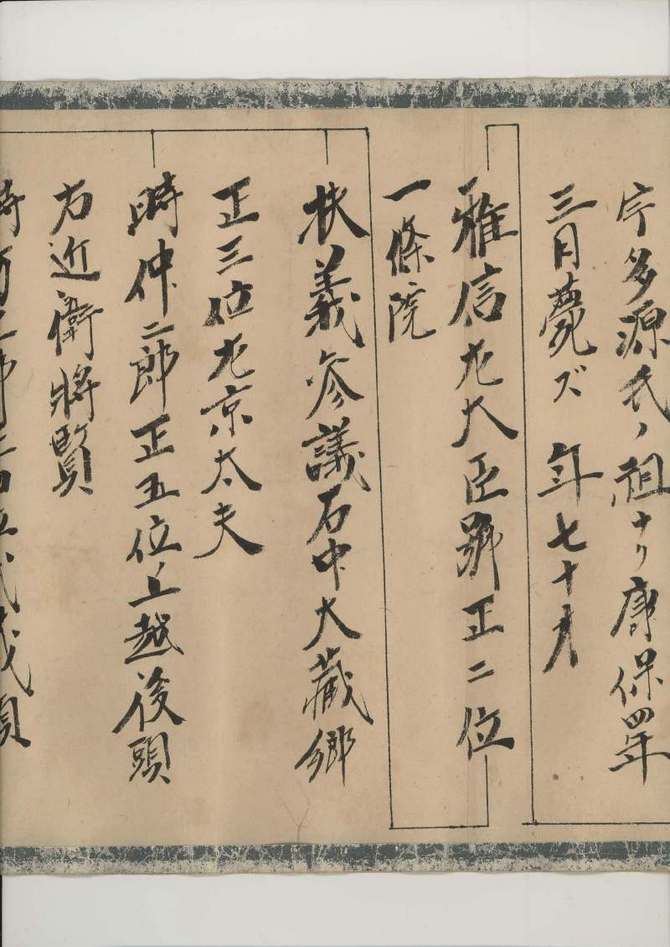 宇多源氏ノ祖ナリ康保四年
三月薨ズ年七十才
雅信左大臣號正二位
一條院
扶義参議右中大蔵卿
正三位左京太夫
時仲二郎正五位上越後頭
右近衛將賢